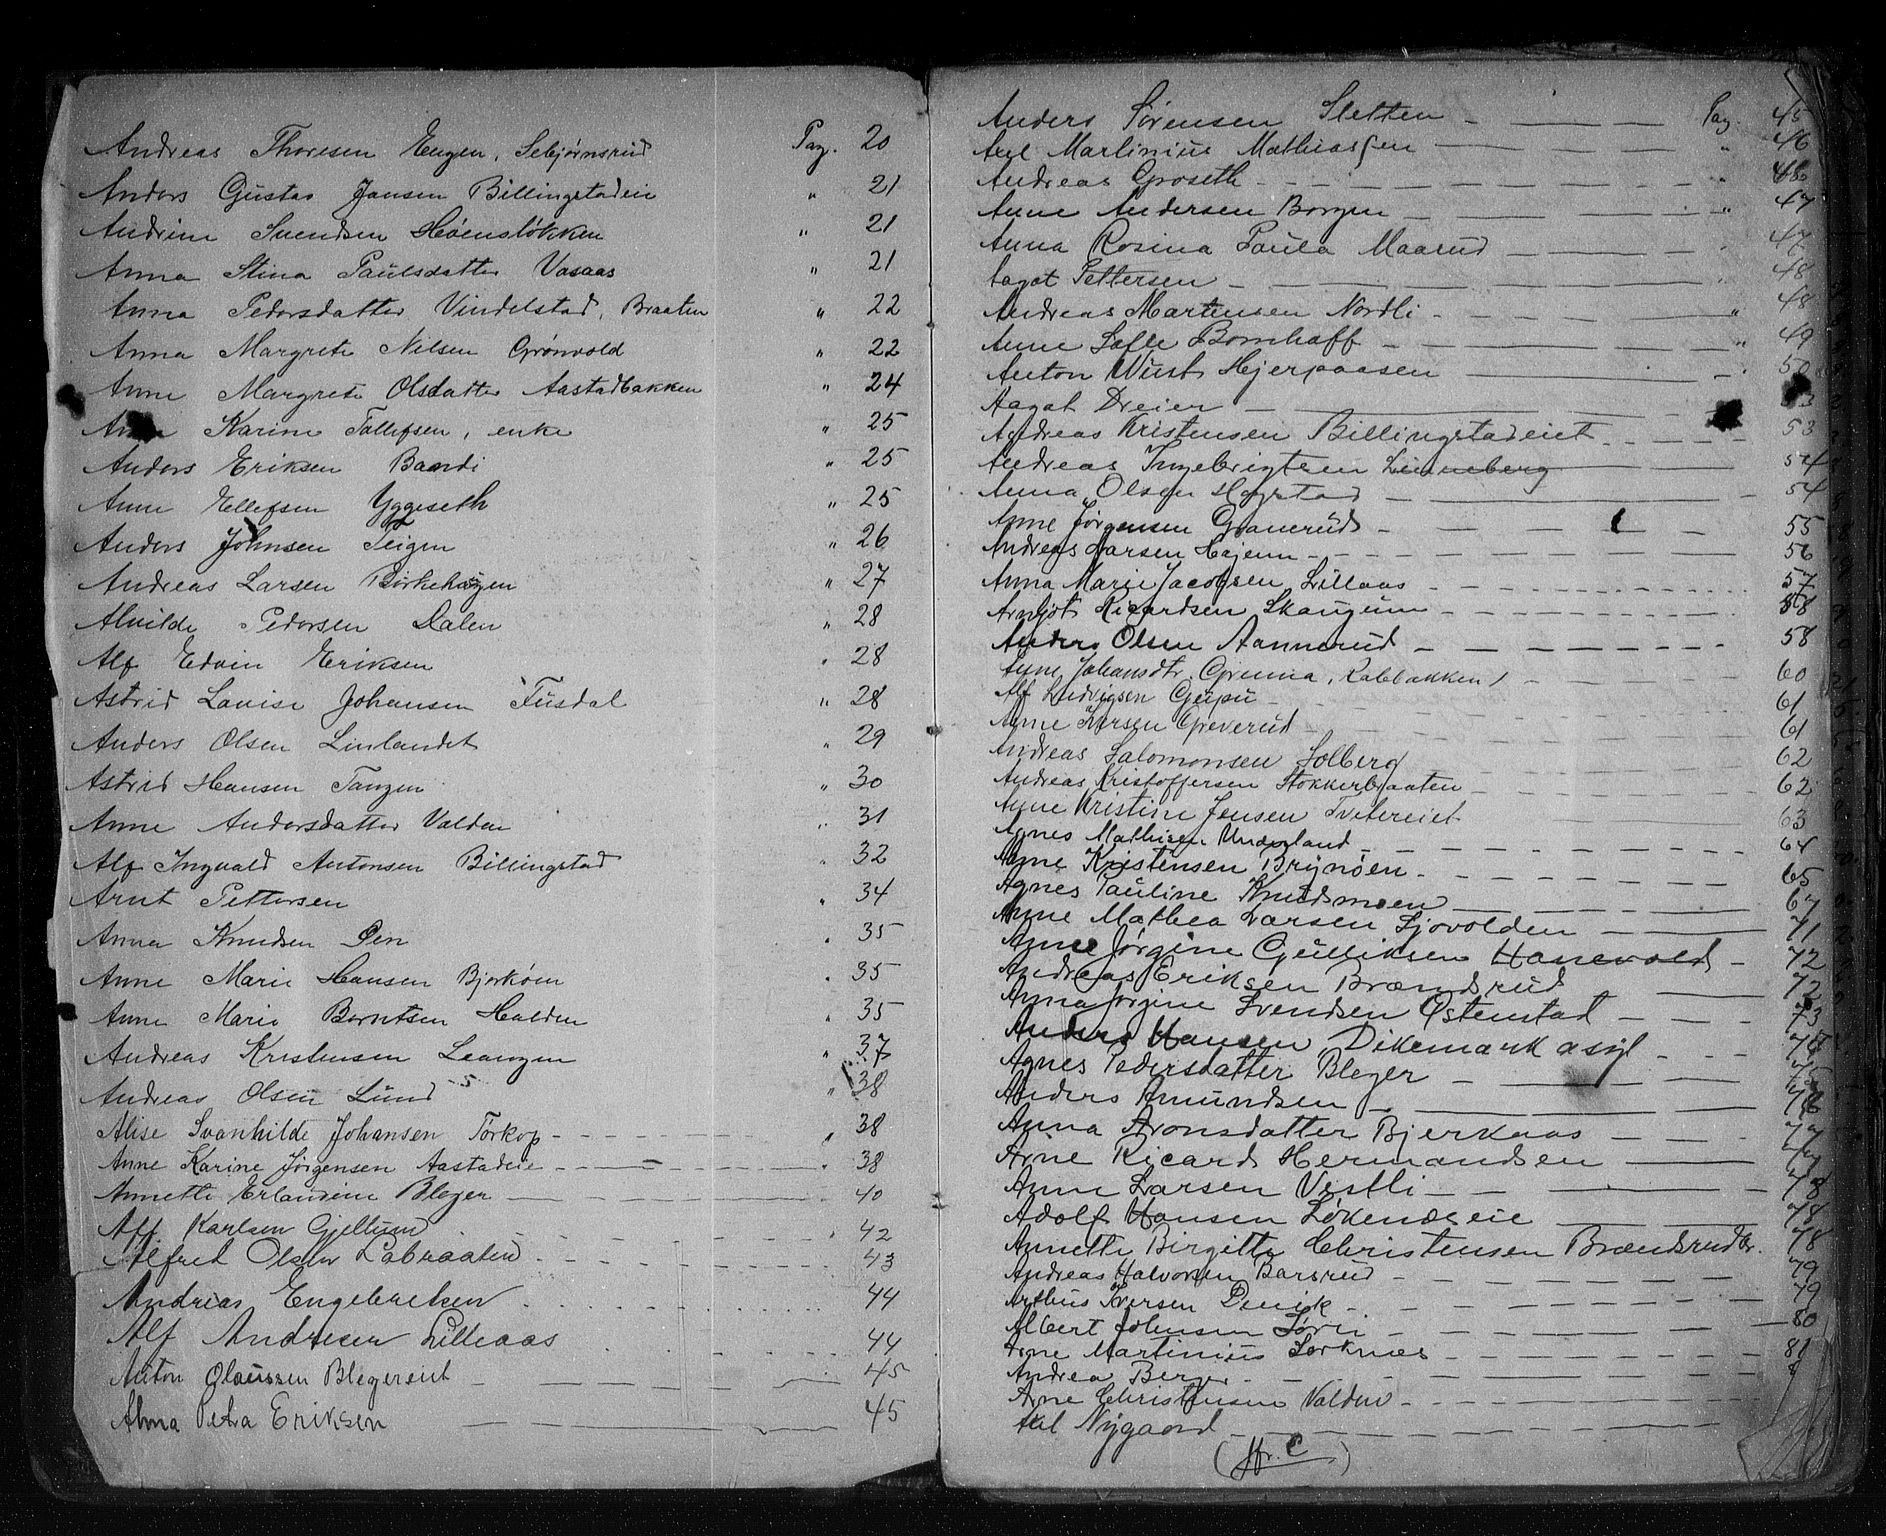 Andreas Thoresen Engen, Sebjørnsrud Pag. 20
Anders Gustav Jansen Billingstadeie " 21
Andrine Svendsen Høensløkken " 21
Anna Stina Paulsdatter Vasaas " 21
Anna Pedersdatter Vindelstad, Braaten " 22
Anna Margrete Nilsen Grønvold " 22
Anne Margrete Olsdatter Aastadbakken " 24
Karine Tollefsen, enke " 25
Anders Eriksen Bandi " 25
Anne Ellefsen Yggeseth " 25
Anders Johnsen Teigen " 26
Andreas Larsen Birkehaugen " 27
Alvilde Pedersen Dalen " 28
Alf Edvin Eriksen " 28
Astrid Lovise Johansen Fusdal " 28
Anders Olsen Linlandet " 29
Astrid Hansen Tangen " 30
Anne Andersdatter Valden " 31
Alf Ingvald Antonsen Billingstad " 32
Arnt Pettersen " 34
Anna Knudsen Øen " 35
Anne Marie Hansen Bjerkøen " 35
Anne Marie Berntsen Halden " 35
Andreas Kristensen Leangen " 37
Andreas Olsen Lund " 38
Alise Svanhilde Johansen Torkop " 38
Anne Karine Jørgensen Aastadeie " 38
Annette Erlandsine Bleger 40
Alf Karlsen Gjellum 42
Alfred Olsen Labraaten 43
Andreas Engebretsen 44
Alf Andresen Lilleaas 44
Anton Olaussen Blegereiet 45
Alma Petra Eriksen 45
Anders Sørensen Sletten Pag. 45
Axel Martinius Mathiassen " 46
Andreas Groseth " 46
Anne Andersen Borgen " 47
Anna Rosina Paula Maarud 47
Aagot Pettersen 48
Andreas Martensen Nordli " 48
Anne Sofie Bomhoff " 49
Anton Wüst Hjerpaasen 50
Aagot Dreier
Andreas Kristensen Billingstadeiet 53
Andreas Ingebrigtsen Linneberg 54
Anna Olsen Hogstad 54
Anne Jørgensen Granerud 55
Andreas Larsen Hajem 56
Anna Marie Jacobsen Lillaas 57
Arnljot Ricardsen Skaugum 58
Anders Olsen Aannerud 58
Anne Johansdtr. Grunna, Rabbakken 60
Alf Ludvigsen Gupu 61
Anne Larsen Greverud 61
Andreas Salomonsen Solberg 62
Andreas Kristoffersen Stokkerbraaten 62
Anne Kristine Jensen Tvetereiet 63
Agnes Mathisen Undersland 64
Arne Kristensen Brynøen 65
Agnes Pauline Knudsmoen 67
Anne Mathea Larsen Sjovolden 71
Anne Jørgine Gulliksen Hanevold 72
Andreas Eriksen Brændsrud 72
Anna Jørgine Svendsen Østenstad 73
Anders Hansen Dikemark asyl
Agnes Pedersdatter Bleger
Anders Amundsen 76
Anna Aronsdatter Bjerkaas 77
Arne Ricard Hermandsen
Anne Larsen Vestli 78
Adolf Hansen Løkenæseie 78
Annette Birgitte Christensen Brændsrudbr. 78
Andreas Halvorsen Barsrud 79
Arthus Iversen Denik 79
Albert Johnsen Sørli 80
Arne Martinius Sørknæs 81
Andrea Berger
Arne Christensen Valden
Axel Nygaard
(Jfr. C)